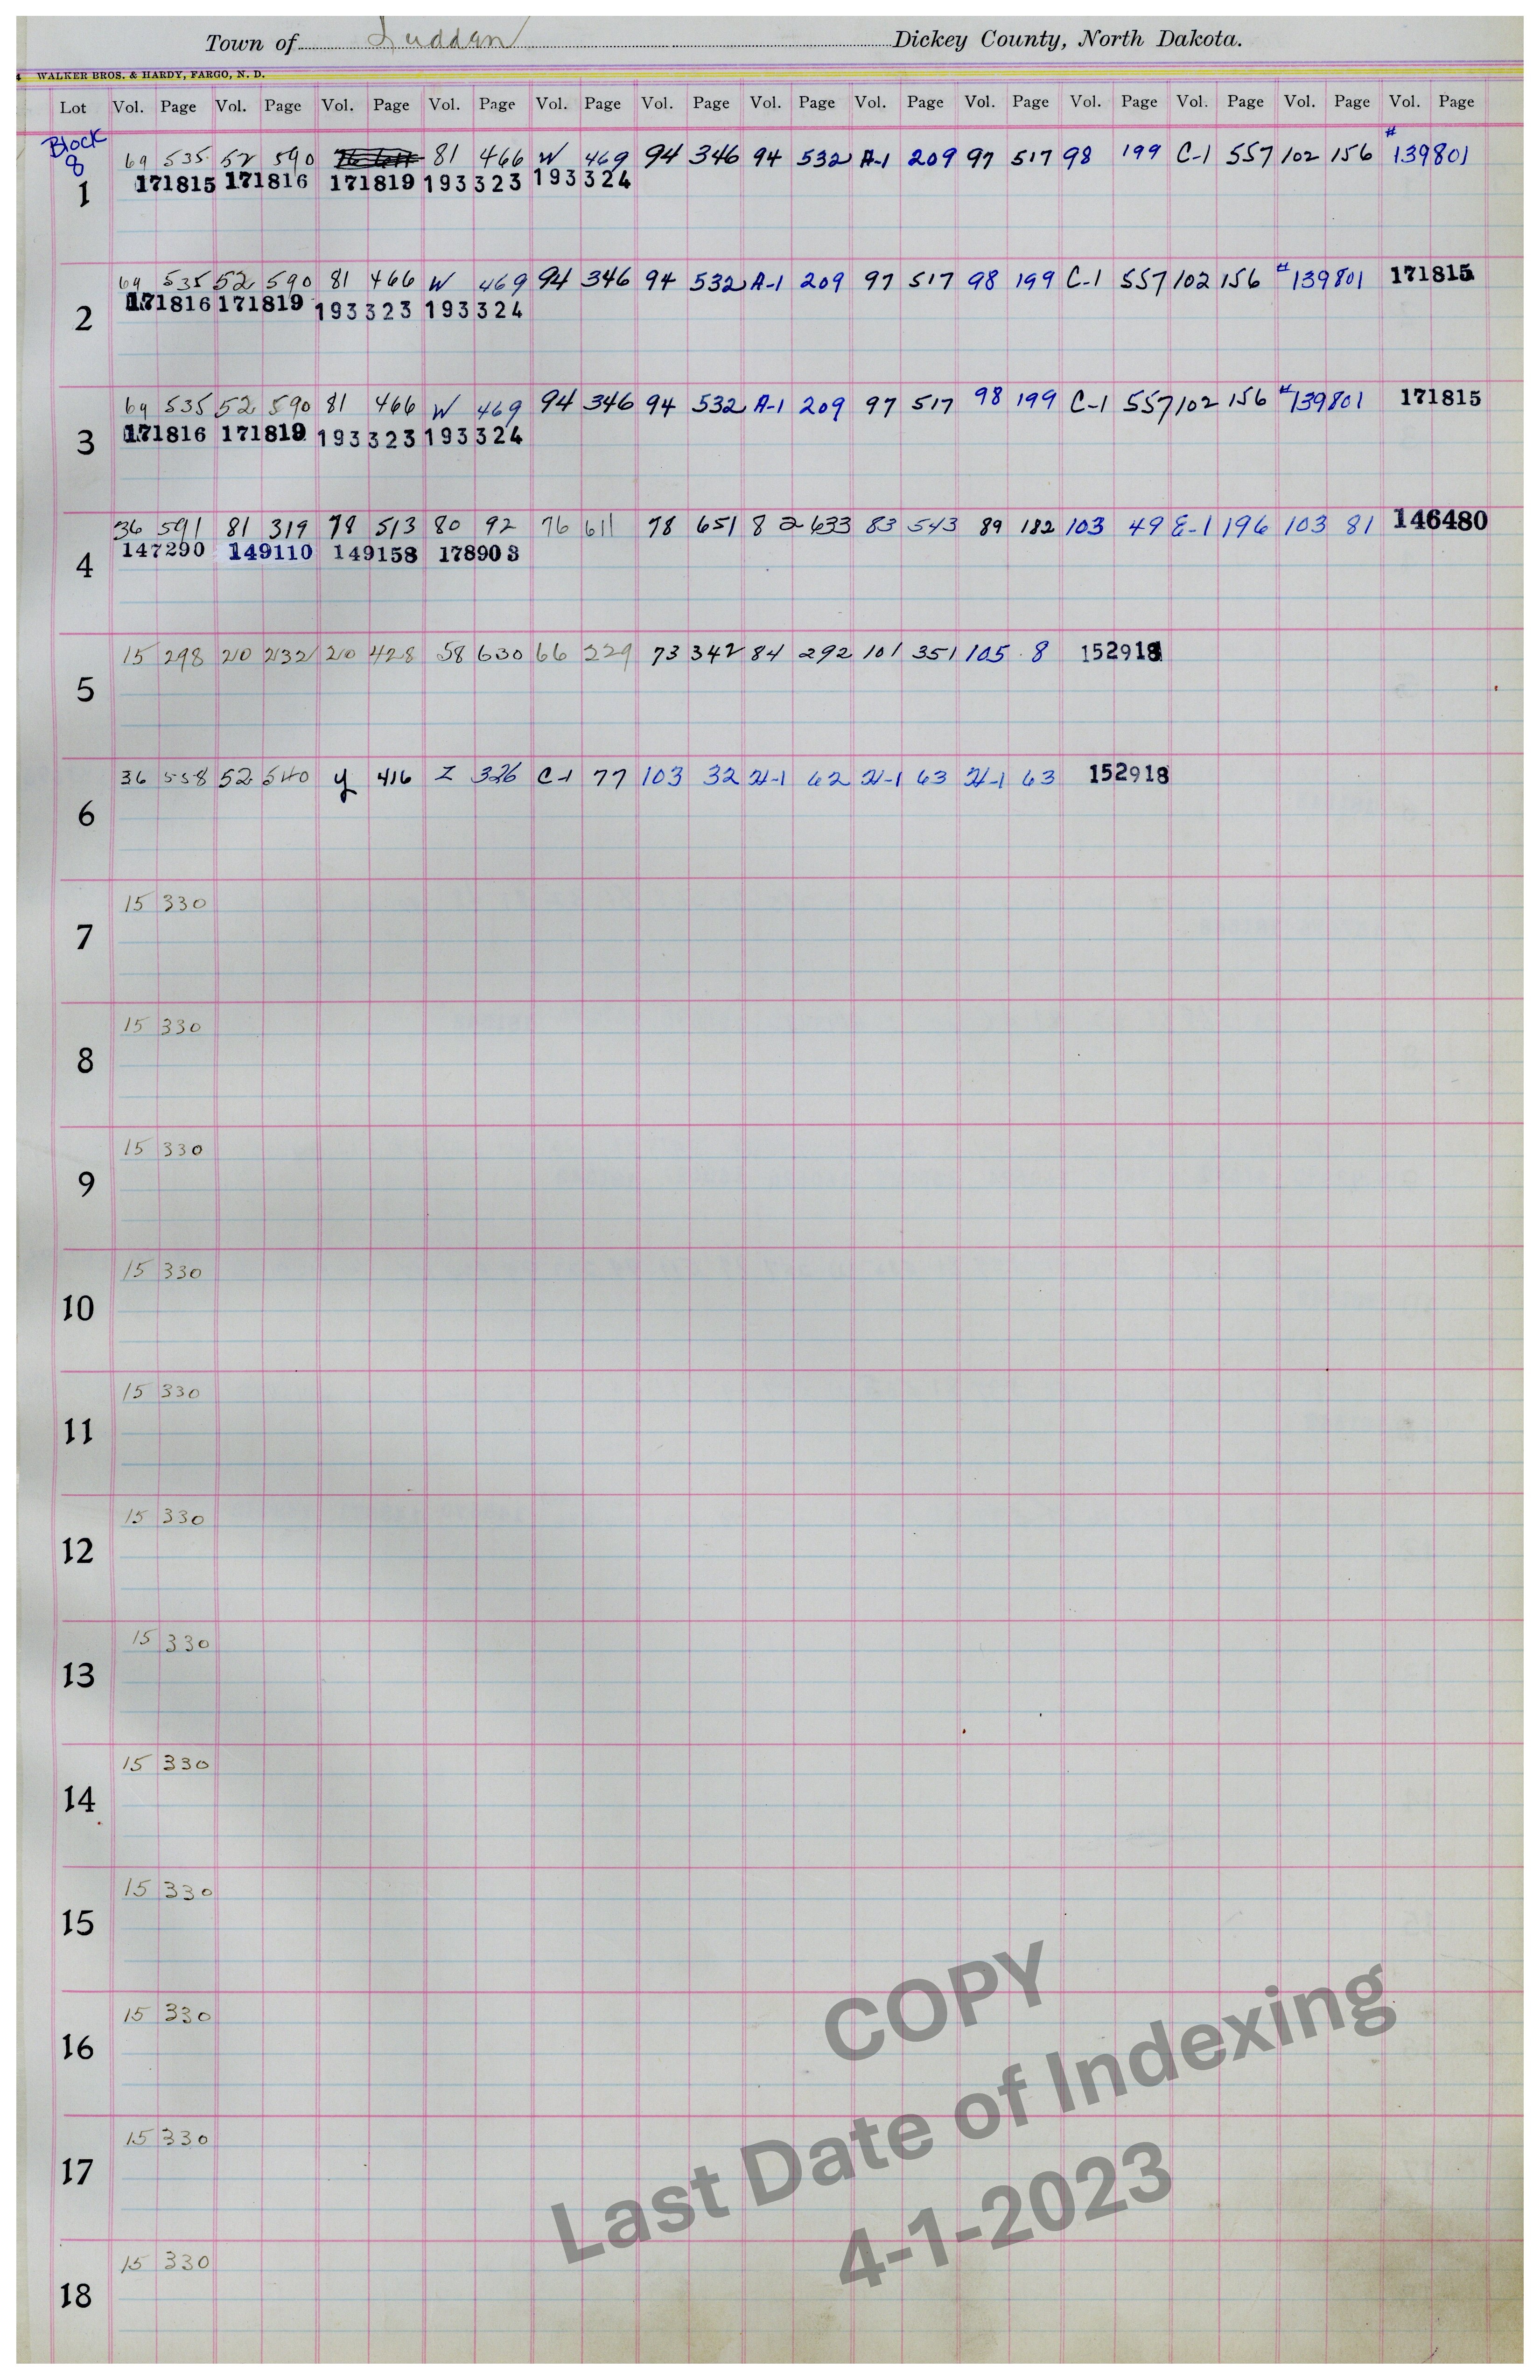 Town of Ludden Dickey County, North Dakota.
WALKER BROS. & HARDY, FARGO, N. D.
Lot Vol. Page Vol. Page Vol. Page Vol. Page Vol. Page Vol. Page Vol. Page Vol. Page Vol. Page Vol. Page Vol. Page Vol. Page Vol. Page
Block
8 69 535 52 590 81 466 W 469 94 346 94 532 A-1 209 97 517 98 199 C-1 557 102 156 # 139801
1 171815 171816 171819 193323 193324
69 535 52 590 81 466 W 469 94 346 94 532 A-1 209 97 517 98 199 C-1 557 102 156 #139801 171815
2 171816 171819 193323 193324
69 535 52 590 81 466 W 469 94 346 94 532 A-1 209 97 517 98 199 C-1 557 102 156 #139801 171815
3 171816 171819 193323 193324
36 591 81 319 78 513 80 92 76 611 78 651 82 633 83 543 89 182 103 49 E-1 196 103 81 146480
4 147290 149110 149158 178903
15 298 20 232 20 428 58 630 66 229 73 342 84 292 101 351 105 8 152918
5
36 558 52 540 y 416 Z 326 C-1 77 103 32 H-1 62 H-1 63 H-1 63 152918
6
15 330
7
15 330
8
15 330
9
15 330
10
15 330
11
15 330
12
15 330
13
15 330
14
15 330
15
15 330
16
15 330
17
15 330
18
COPY
Last Date of Indexing
4-1-2023